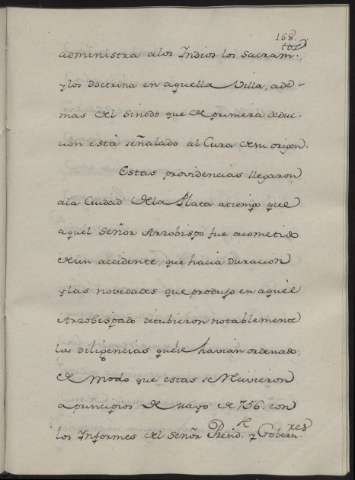 168
administra alos Indios los Sacram.tos
ylos doctrina en aquella Villa, ade-
mas del sinodo que de primera deduc-
cion está señalado al Cura de su origen.
Estas providencias llegaron
ala Ciudad dela Plata atiempo que
aquel Señor Arzobispo fue acometido
de un accidente, que hacia duracion
y las novedades que produjo en aquel
Arzobispado retubieron notablemente
las diligencias que le havian ordenado,
de modo que estas se hicieron
a principios de Mayo de 756. con
los Informes del Señor Presid.te y Gobern.res